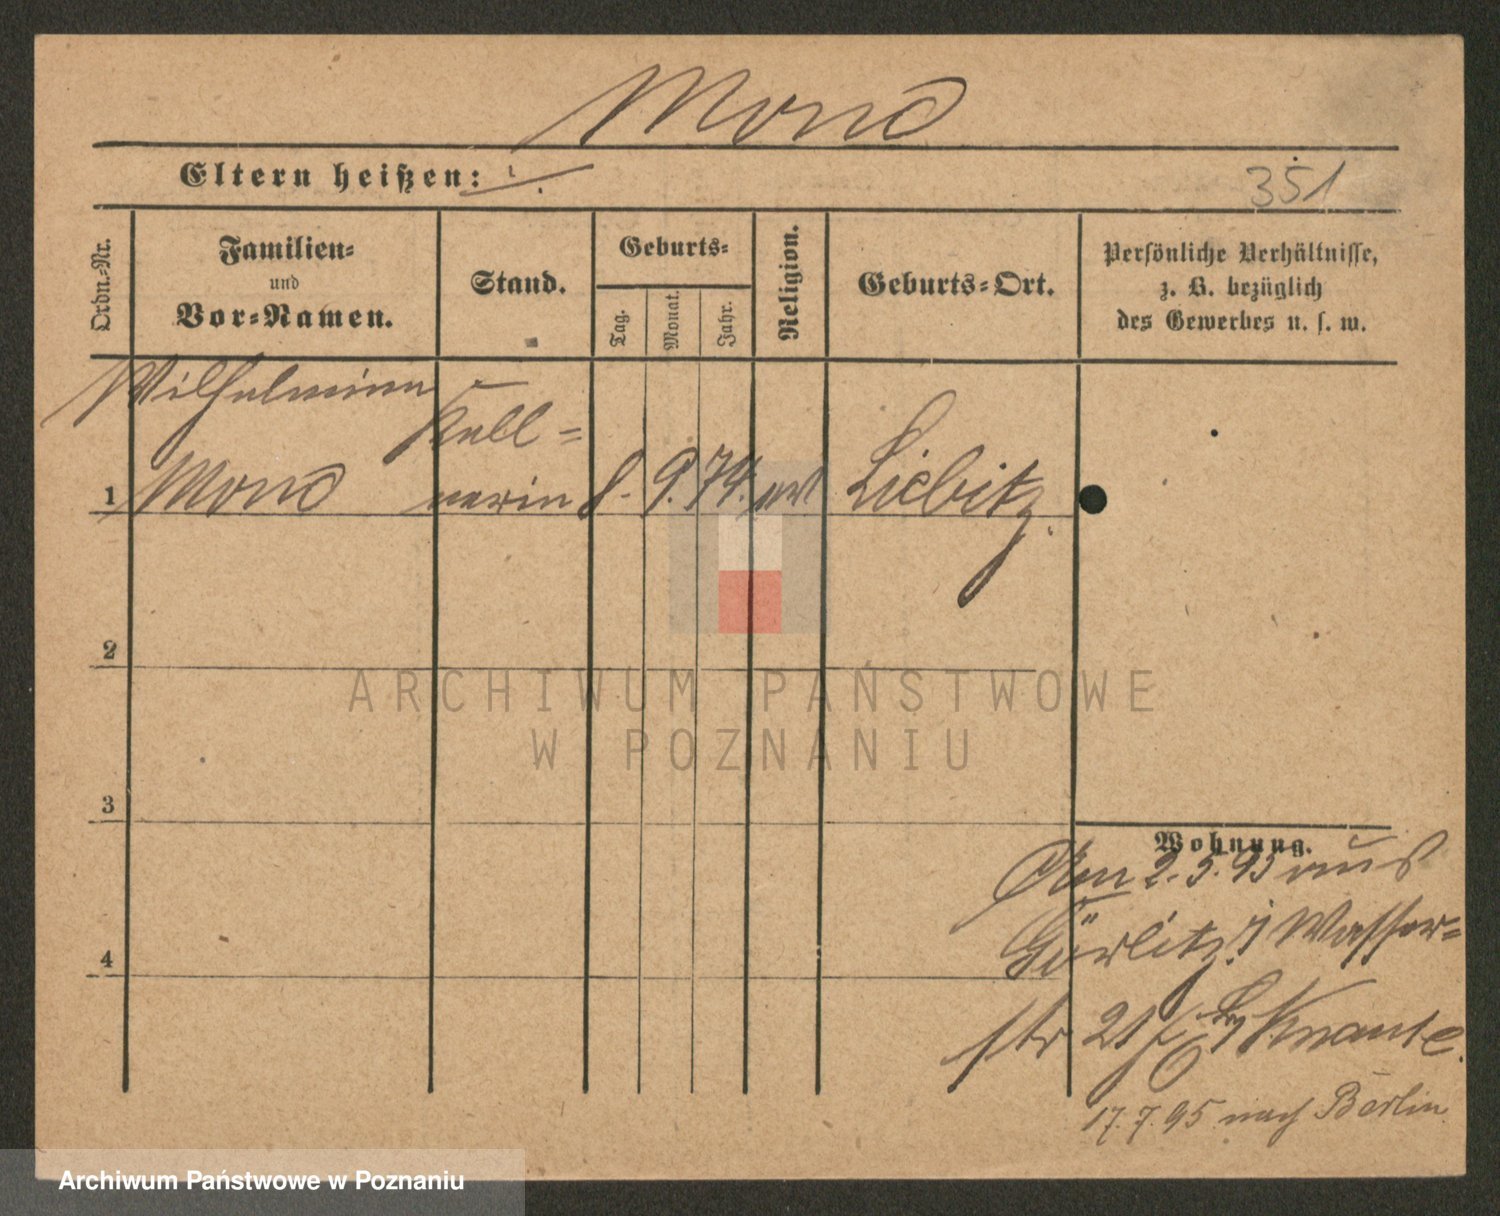 Mond
Eltern heißen: ./.
351
Ordn.-Nr.
Familien-
und
Vor-Namen.
Stand.
Geburts-
Tag.
Monat.
Jahr.
Religion.
Geburts-Ort.
Persönliche Verhältnisse,
z. B. bezüglich
des Gewerbes u. s. w.
Wilhelmine
Kell-
1 Mond nerin 8. 9. 74. Liebitz.
2
3
4
Wohnung.
2.5.95 aus
Görlitz Wasser-
str 21
17.7.95 nach Berlin
ARCHIWUM PAŃSTWOWE
W POZNANIU
Archiwum Państwowe w Poznaniu